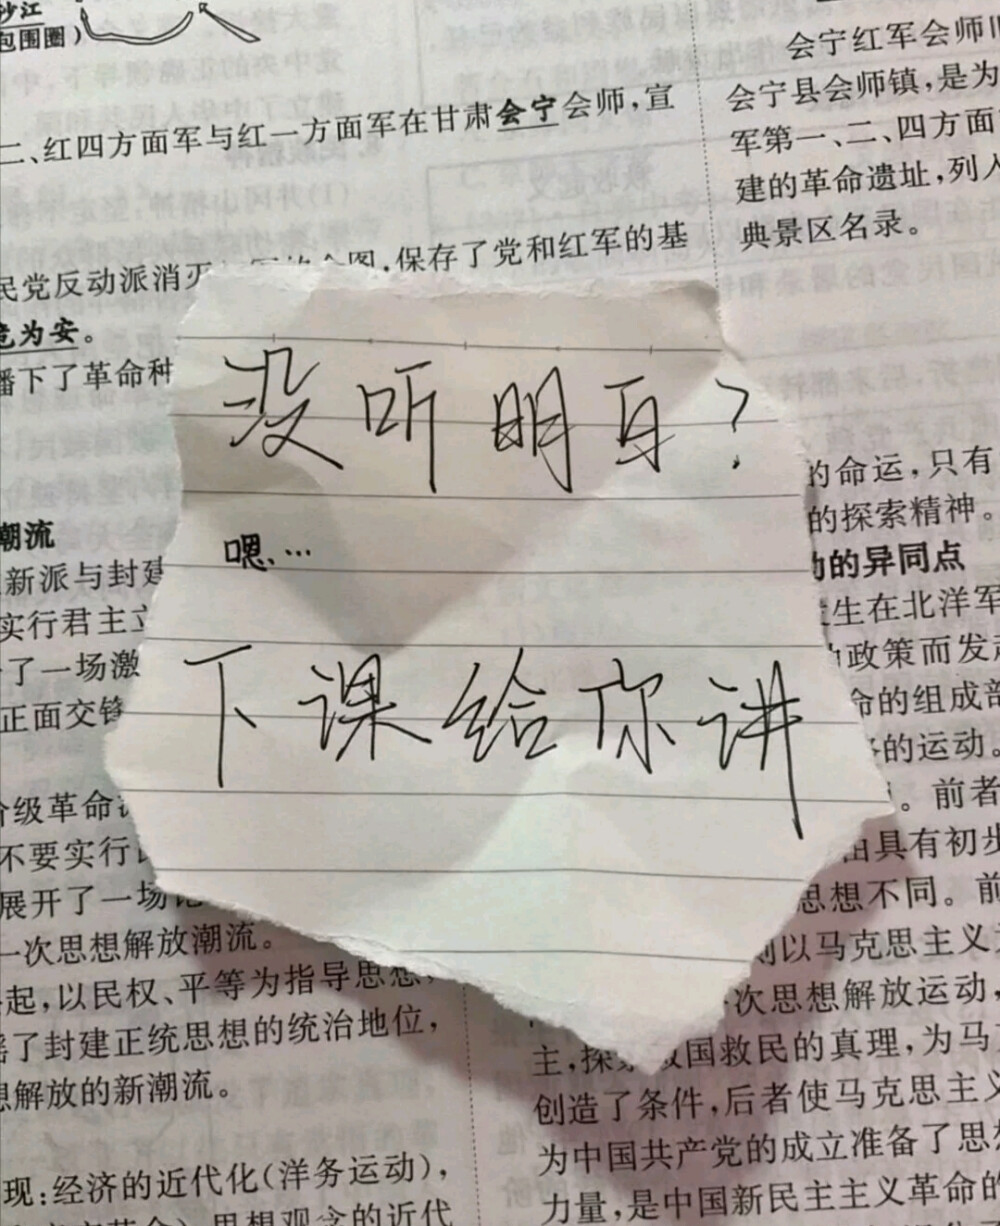 沙江
包围圈）
二、红四方面军与红一方面军在甘肃会宁会师，宣
民党反动派消灭
企图，保存了党和红军的基
为安。
播下了革命种
会宁红军会师旧
会宁县会师镇，是为
军第一、二、四方面
建的革命遗址，列入
典景区名录。
没听明白？
嗯…
下课给你讲
潮流
新派与封建
实行君主立
了一场激
正面交锋
阶级革命
不要实行
展开了一场
一次思想解放潮流。
起，以民权、平等为指导思想，
摇了封建正统思想的统治地位，
想解放的新潮流。
现：经济的近代化（洋务运动），
思想观念的近代
的命运，只有
的探索精神。
动的异同点
发生在北洋军
的政策而发
命的组成部
的运动。
。前者
由具有初步
思想不同。前
则以马克思主义
次思想解放运动，
主，探索救国救民的真理，为马
创造了条件，后者使马克思主义
为中国共产党的成立准备了思想
力量，是中国新民主主义革命的